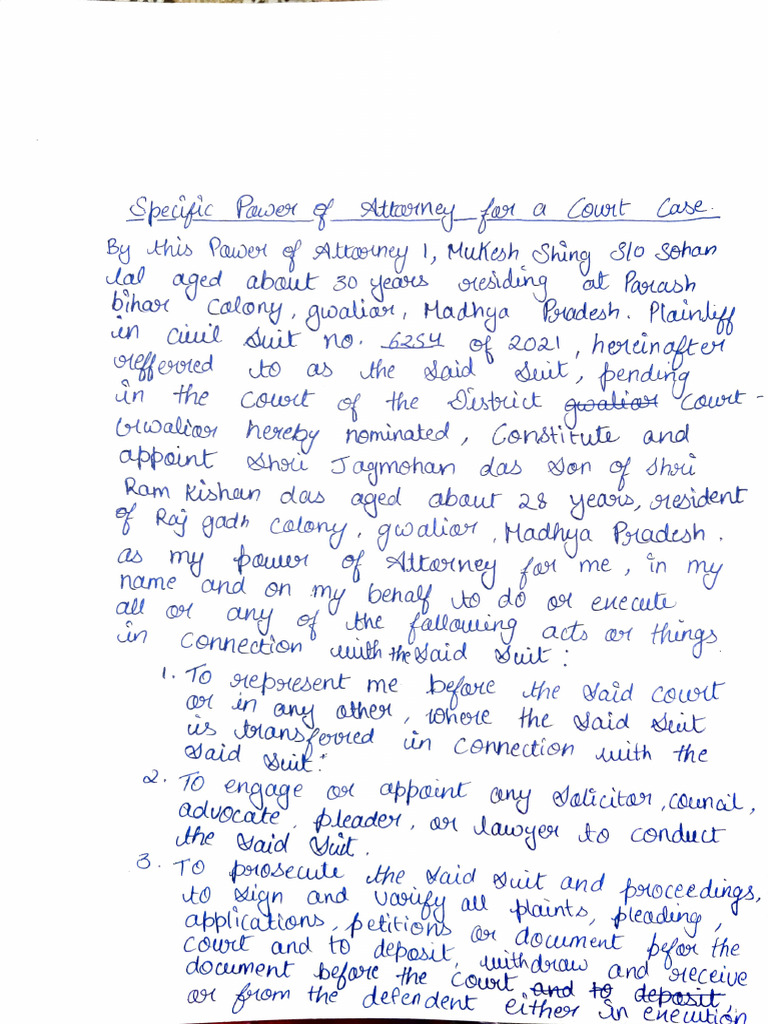 Specific Power of Attorney for a Court Case.
By this Power of Attorney I, Mukesh Shing S/o Sohan
lal aged about 30 years residing at Parash
bihar Colony, gwaliar, Madhya Pradesh. Plaintiff
in civil Suit no. 6254 of 2021, hereinafter
refferred to as the Said Suit, pending
in the court of the District gwaliar court -
Gwaliar hereby nominated, Constitute and
appoint Shri Jagmohan das Son of Shri
Ram Kishan das aged about 28 years, resident
of Raj gadh Colony, gwaliar, Madhya Pradesh.
as my power of Attorney for me, in my
name and on my behalf to do or execute
all or any of the following acts or things
in connection with the Said Suit:
1. To represent me before the said court
or in any other, where the Said Suit
is transferred in connection with the
Said Suit:
2. To engage or appoint any Solicitor, council,
advocate, pleader, or lawyer to conduct
the Said Suit.
3. To prosecute the Said Suit and proceedings,
to sign and varify all plaints, pleading,
applications, petitions or document befor the
court and to deposit, withdraw and receive
document before the court and to deposit,
or from the defendent either in execution